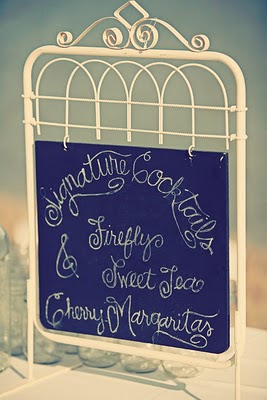 Signature Cocktails
Firefly
& Sweet Tea
Cherry Margaritas